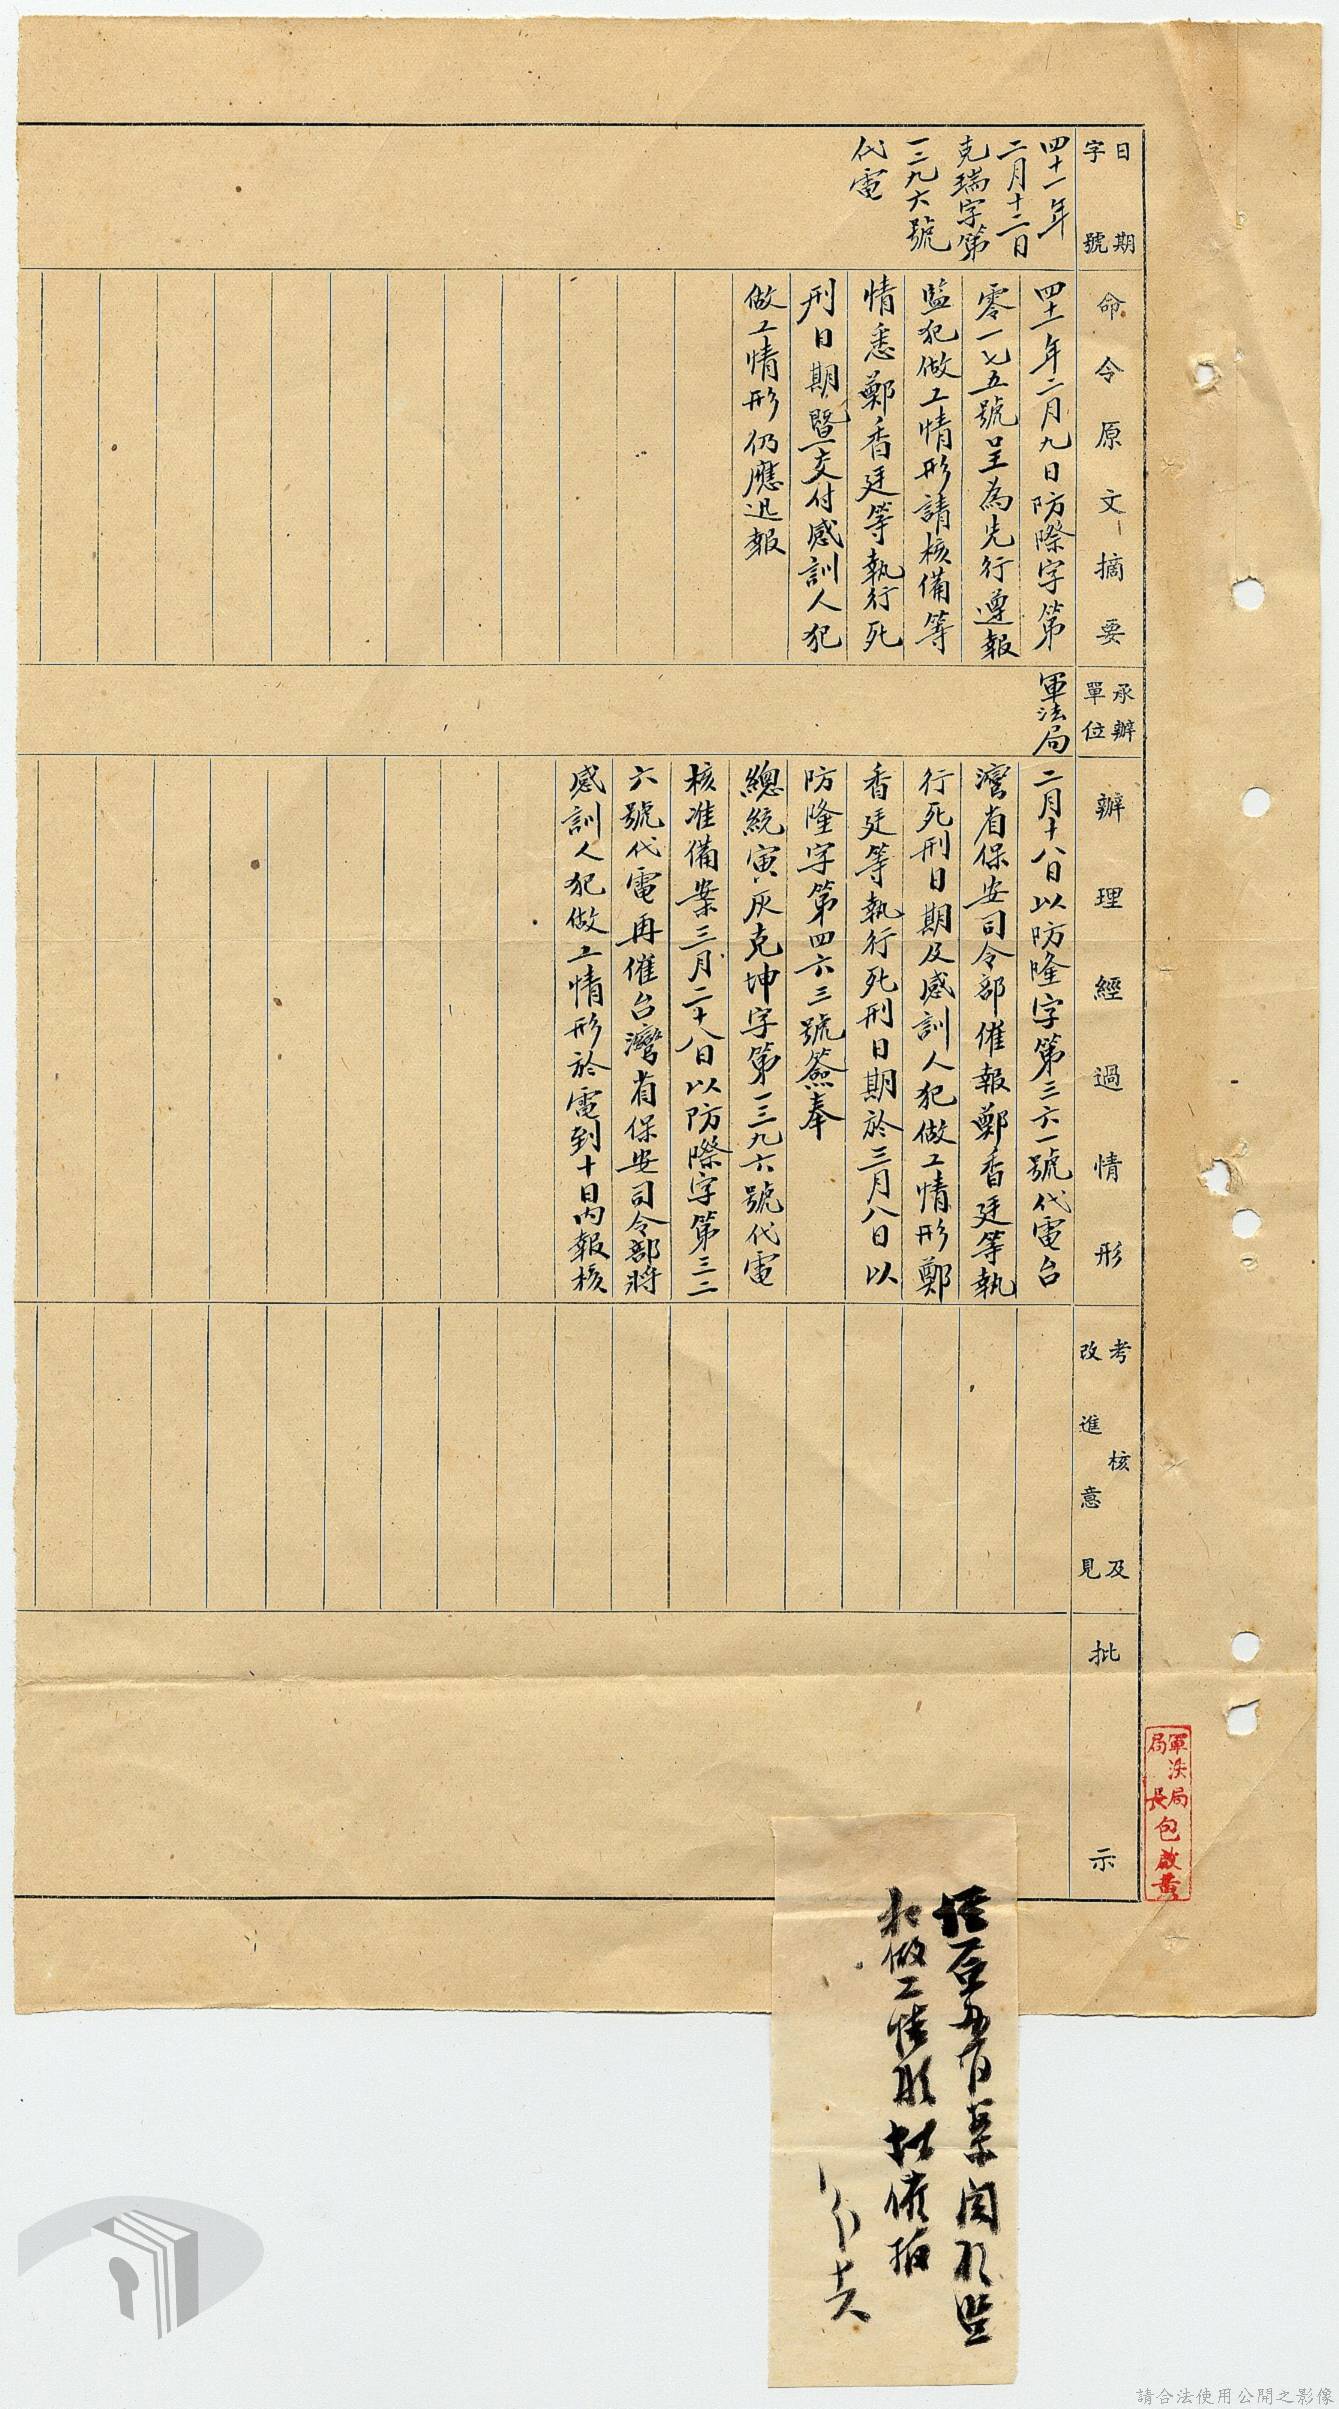 日期
字號
四十一年
二月十二日
克瑞字第
一三九六號
代電
命令原文摘要
四十一年二月九日防際字第
零一七五號呈為先行遵報
監犯做工情形請核備等
情悉鄭香廷等執行死
刑日期暨交付感訓人犯
做工情形仍應迅報
承辦
單位
軍法局
辦理經過情形
二月十八日以防隆字第三六一號代電台
灣省保安司令部催報鄭香廷等執
行死刑日期及感訓人犯做工情形鄭
香廷等執行死刑日期於三月八日以
防隆字第四六三號簽奉
總統寅灰克坤字第一三九六號代電
核准備案三月二十八日以防際字第三二
六號代電再催台灣省保安司令部將
感訓人犯做工情形於電到十日內報核
考核及
改進意見
批示
軍法局
局長包啟黃
案關於監
犯做工情形
請合法使用公開之影像